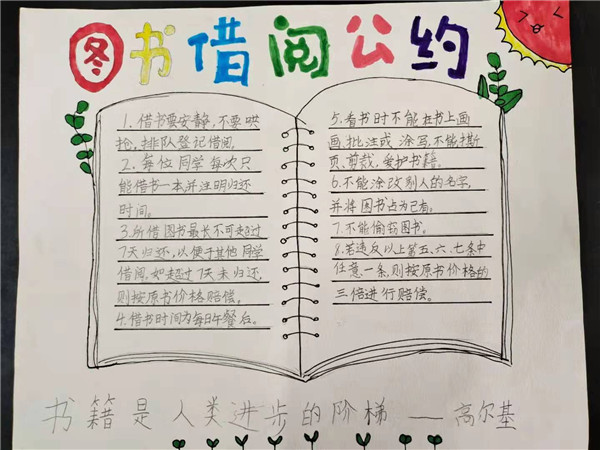 图书借阅公约
1.借书要安静,不要哄
抢,排队登记借阅,
2.每位同学每次只
能借书一本并注明归还
时间。
3.所借图书最长不可超过
7天归还,以便于其他同学
借阅.如超过7天未归还,
则按原书价格赔偿。
4.借书时间为每日午餐后。
5.看书时不能在书上画
画,批注或涂写,不能撕
页、剪裁,爱护书籍。
6.不能涂改别人的名字,
并将图书占为己有。
7.不能偷窃图书。
8.若违反以上第五、六、七条中
任意一条,则按原书价格的
三倍进行赔偿。
书籍是人类进步的阶梯——高尔基